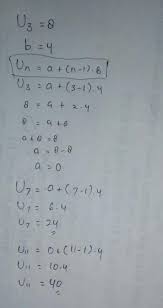 U₃ = 8
b = 4
Uₙ = a + (n-1)·b
U₃ = a + (3-1)·4
8 = a + 2·4
8 = a + 8
a + 8 = 8
a = 8 - 8
a = 0
U₇ = 0 + (7-1)4
U₇ = 6·4
U₇ = 24
U₁₁ = 0 + (11-1)·4
U₁₁ = 10·4
U₁₁ = 40